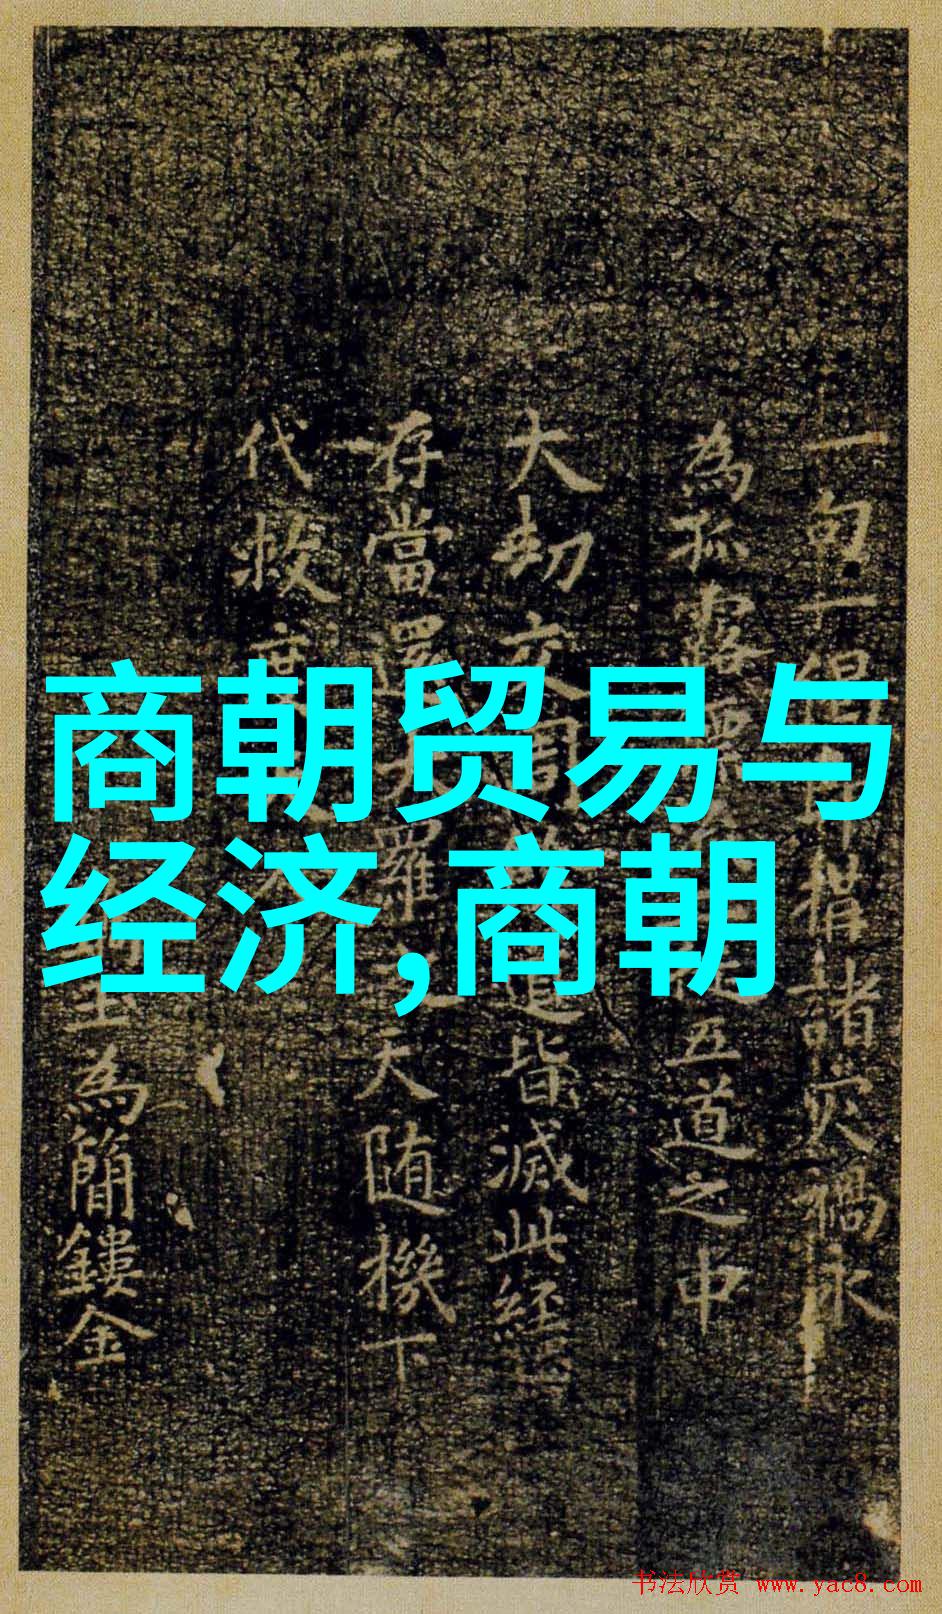 商朝贸易与
经济,商朝
一句一 諸灾禍永
為孤露 五道之中
大劫交周 皆滅此經
存當還大羅之天随機下
代救
為簡鏤金
书法欣赏 www.yac8.com